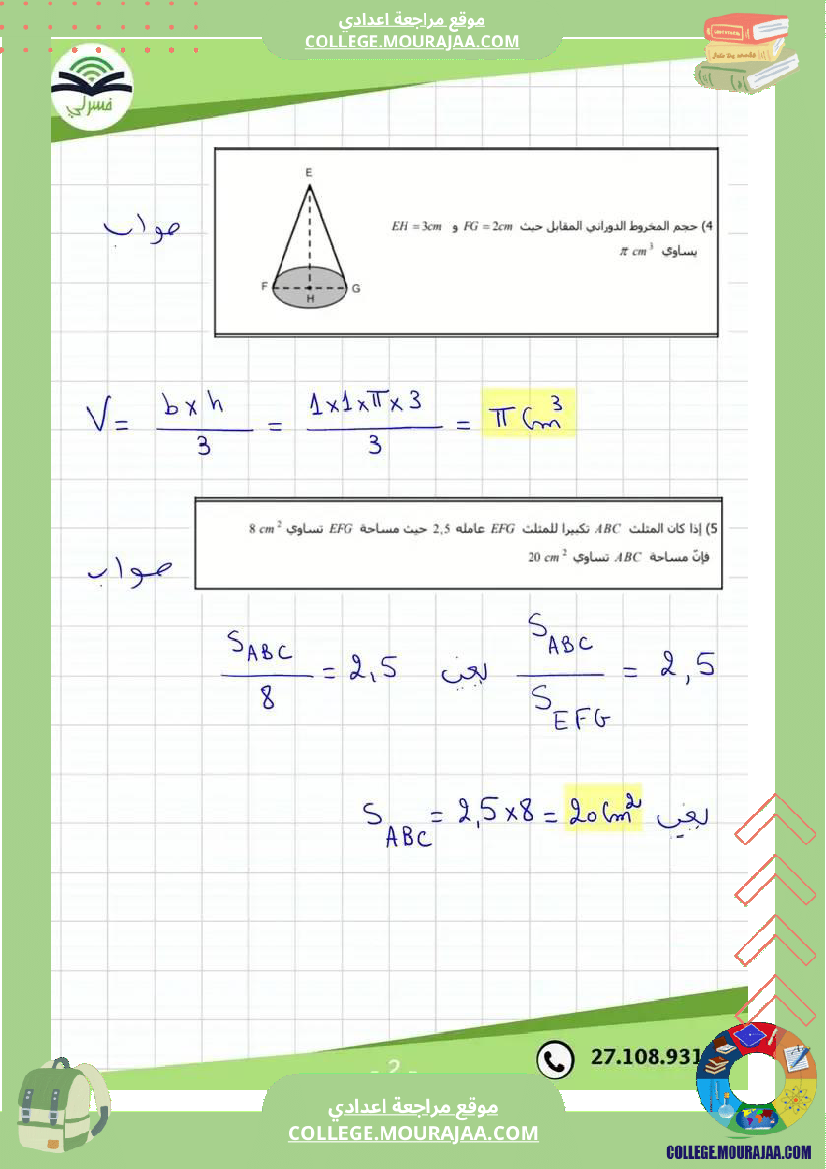 موقع مراجعة اعدادي
COLLEGE.MOURAJAA.COM
فسرلي
4) حجم المخروط الدوراني المقابل حيث FG = 2cm و EH = 3cm
يساوي π cm³
E
F
G
H
صواب
V = b×h/3 = 1×1×π×3/3 = π Cm³
5) إذا كان المثلث ABC تكبيرا للمثلث EFG عامله 2,5 حيث مساحة EFG تساوي 8 cm²
فإنّ مساحة ABC تساوي 20 cm²
صواب
S_ABC/S_EFG = 2,5 يعني S_ABC/8 = 2,5
يعني S_ABC = 2,5×8 = 20Cm²
- 2 -
27.108.931
موقع مراجعة اعدادي
COLLEGE.MOURAJAA.COM
COLLEGE.MOURAJAA.COM